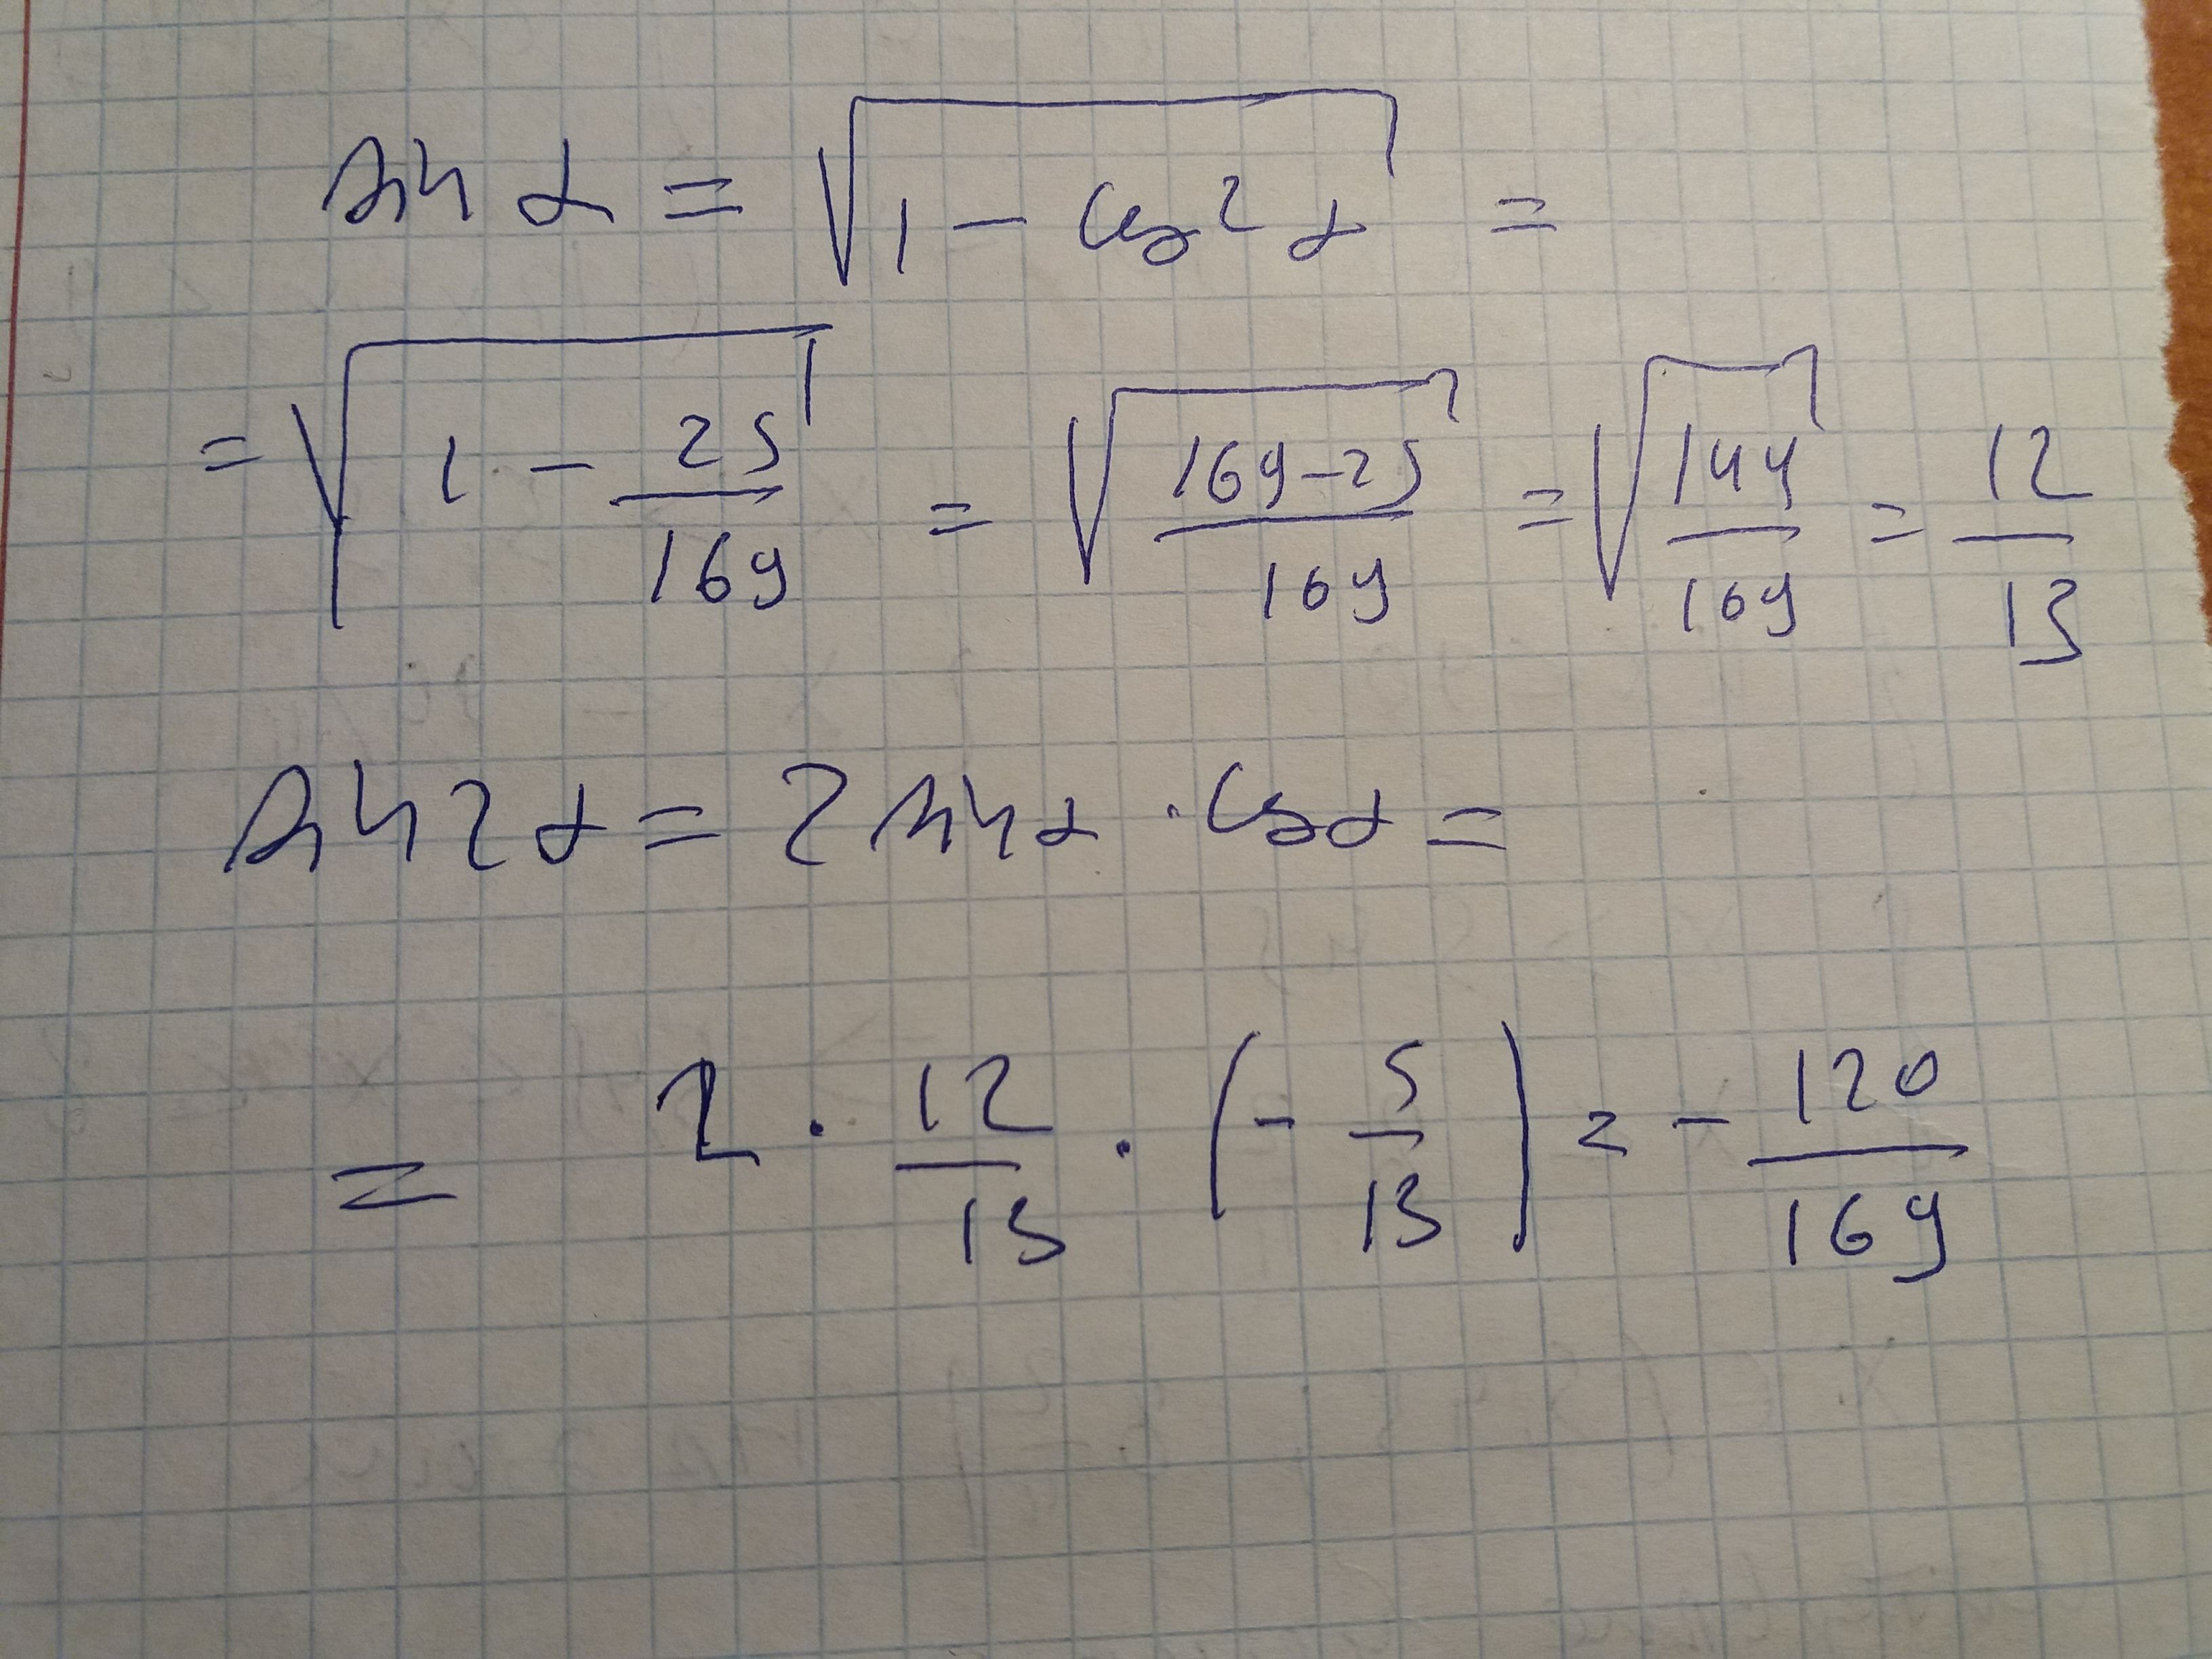 sin α = √(1 - cos² α) =
= √(1 - 25/169) = √((169-25)/169) = √(144/169) = 12/13
sin 2α = 2 sin α · cos α =
= 2 · 12/13 · (- 5/13) = - 120/169